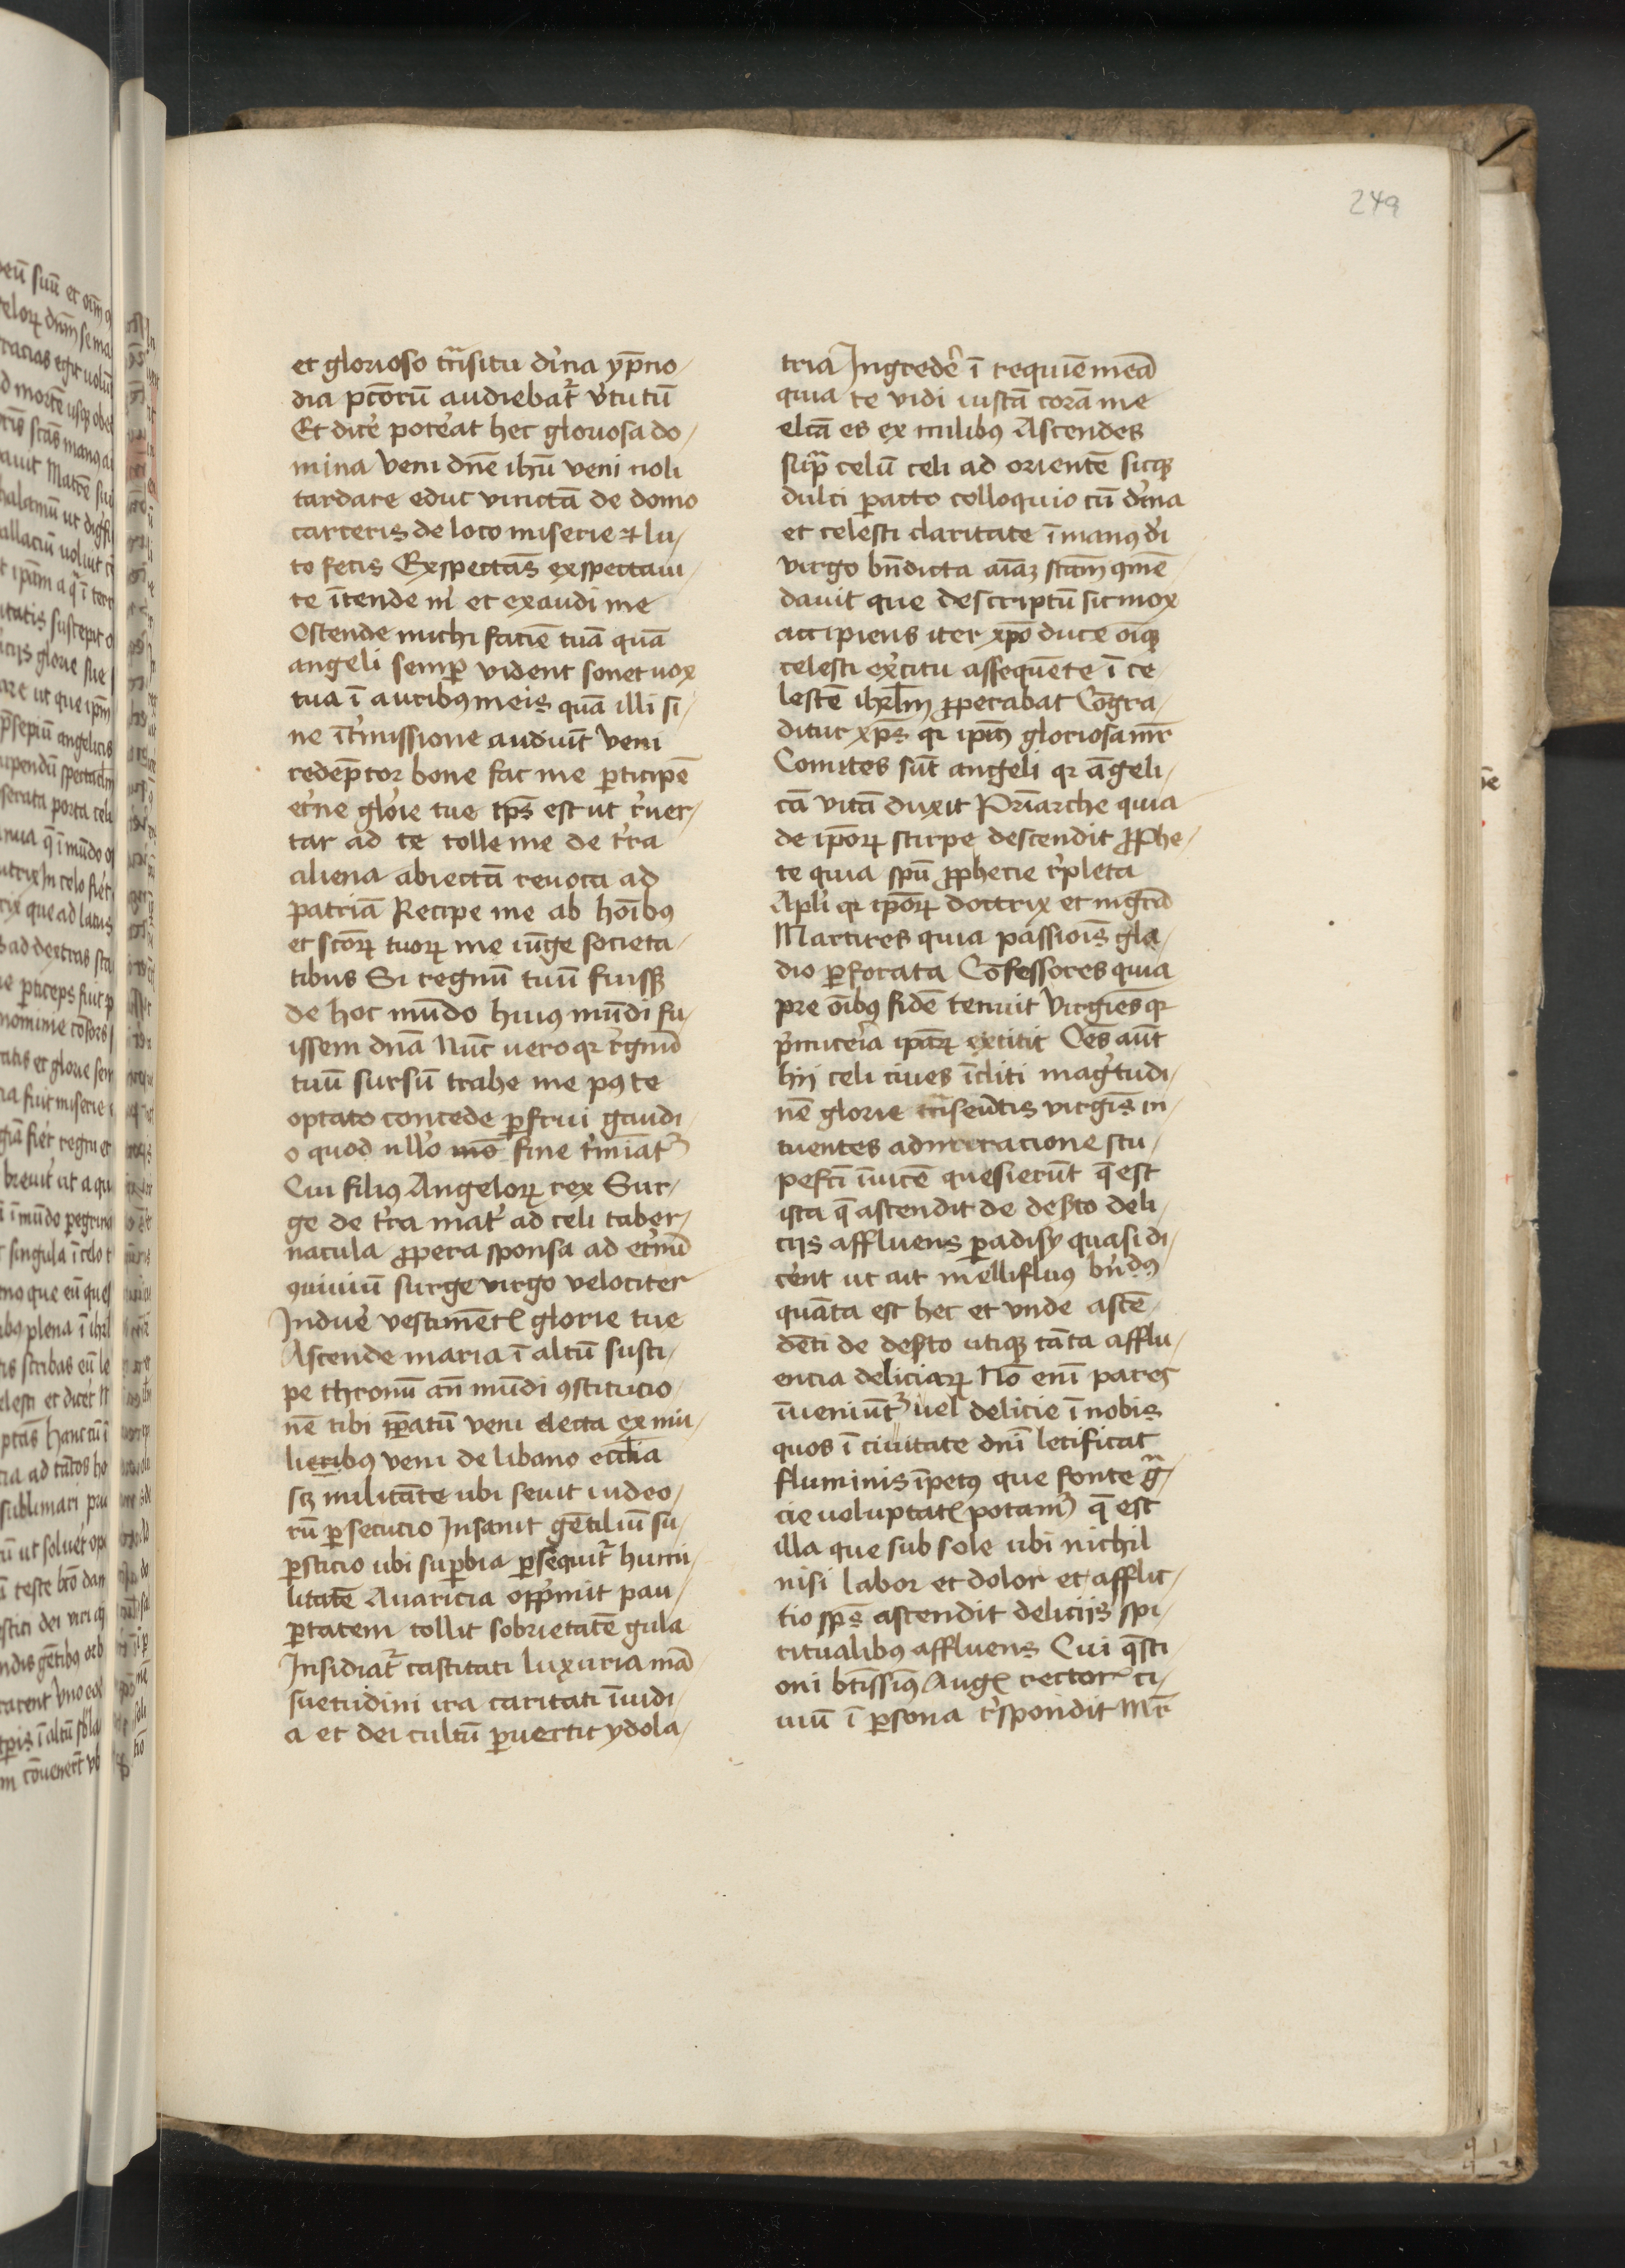 249
et glorioso trͣsitu diͥna yp̄no
dia pctorū audiebat᷑ v̓tutū
Et dice᷑ poteat hec gloriosa do
mina veni dn̄e ihū veni noli
tardare educ vinctā de domo
carceris de loco miserie et lu
to fecis Exspectās exspectaui
te ītende m̓ et exaudi me
Ostende michi faciē tuā quā
angeli semp̱ vident sonet uox
tua ī auribꝰ meis quā illi si
ne īt̓missione audiūt Veni
redēptor bone fac me ꝑticipē
et̓ne glo̓ie tue tp̄s est ut r̓uer
tar ad te tolle me de t̓ra
aliena abiectā reuoca ad
patriā Recipe me ab hoīibꝰ
et scōꝝ tuoꝝ me iūge societa
tibus Si regnū tuū fuissꝫ
de hoc mūdo huiꝰ mūdi fu
issem dnā Nūc uero qꝛ r̓gnū
tuū sursū trahe me pꝰ te
optato concede ꝑfrui gaudi
o quod nllo mō fine t̓miat᷑
Cui filiꝰ Angeloꝝ rex Sur
ge de t̓ra mat̓ ad celi taber
nacula ꝓpera sponsa ad et̓nū
ꝯuiuiū surge virgo velociter
Indue᷑ vestimētꝭ glorie tue
Ascende maria ī altū susci
pe thronū añ mūdi ꝯstitucio
nē tibi ꝑatū veni electa ex mu
lieribꝰ veni de libano eccl̄ia
sꝫ militāte ubi seuit iudeo
rū ꝑsecucio Insanit gētiliū su
ꝑsticio ubi suꝑbia ꝑsequit᷑ humi
litatē Auaricia opp̓mit pau
ꝑtatem tollit sobrietatē gula
Insidiat᷑ castitati luxuria mā
suetudini ira caritati īuidi
a et dei cultū ꝑuertit ydola
tria Ingrede᷑ ī requiē meā
quia te vidi iustā corā me
elcā es ex milibꝰ Ascendes
supͣ celū celi ad orientē sicqꝫ
dulci ꝑacto colloquio cū diͥna
et celesti claritate ī manꝰ di̓
virgo bn̄dicta aīaꝫ scām ꝯmē
dauit que descriptū sit mox
accipiens iter xp̄o duce oīqꝫ
celesti ex̓citu assequēte ī ce
lestē ihrl̄m ꝓperabat Cōgra
ditur xp̄s qꝛ ipīꝰ gloriosa mr̄
Comites sūt angeli qꝛ āgeli
cā vitā duxit Pr̄iarche quia
de ip̄oꝝ stirpe descendit ꝓphe
te quia spū ꝓphecie r̓pleta
Apli̓ qꝛ ip̄oꝝ doctrix et mgr̄a
Martires quia passiōis gla
dio ꝑforata Cōfessores quia
pre oībꝰ fidē tenuit Virgīes qꝛ
p̓micer̓ia ip̄aꝝ extitit Oēs aūt
hij celi ciues īcliti mag̓tudi
nē glorie trͣsēutis virgīs in
tuentes admiracione stu
pefc̄i īuicē quesierūt q̄ est
ista q̄ ascendit de des̓to deli
ciis affluens ꝑadisy quasi di
cēnt ut ait mellifluꝰ bn̓dꝰ
quāta est hec et vnde ascē
dēti de des̓to utiqꝫ tāta afflu
encia deliciaꝝ Nō enī pares
īueniūt᷑ uel delicie ī nobis
quos ī ciuitate dnī letificat
fluminis īpetꝰ que fonte gͣ
cie uoluptatꝭ potamꝰ q̄ est
illa que sub sole ubi nichil
nisi labor et dolor et afflic
tio spūs ascendit deliciis spi
ritualibꝰ affluens Cui q̄sti
oni btissimꝰ Augꝭ rector ci
uiū ī ꝑsona r̓spondit Mr̄